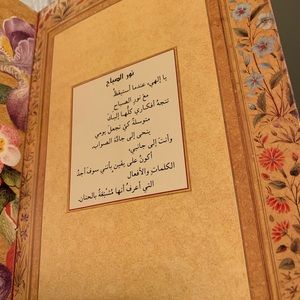 نور الصباح
يا إلهي، عندما أستيقظُ
مع نور الصباح
تتجهُ أفكاري كلُّها إليكَ
متوسلةً كَيْ تجعلَ يومي
ينحى إلى جادّة الصواب.
وأنتَ إلى جانبي،
أكونُ على يقينٍ بأنني سوف أجدُ
الكلمات والأفعال
التي أعرفُ أنها مُشبَعَةٌ بالحنان.